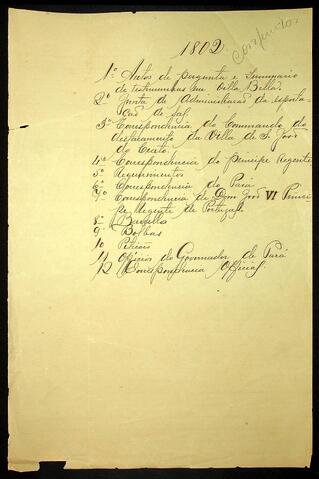 1802
1º Autos de pergunta e Summario
de testimunhas em Villa Bella.
2º Junta de Administração da exporta
ção de sal.
3º Correspondencia do Commando do
destacamento da Villa de S. João
do Crato.
4º Correspondencia do principe Regente
5º Requerimentos
6º Correspondencia do Pará
7º Correspondencia de Dom João VI Princi
pe Regente de Portugal.
8º
9º
10 Petições
11 Officios do Governador do Pará
12 Correspondencia Official